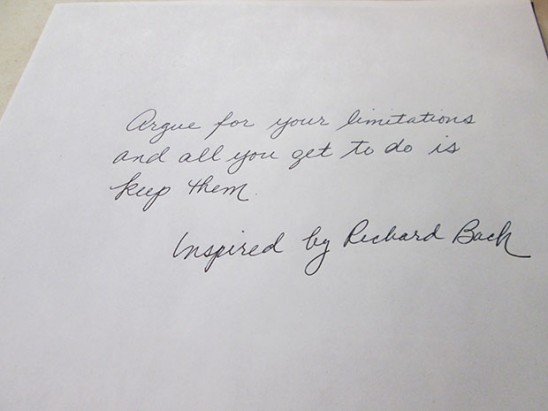 Argue for your limitations
and all you get to do is
keep them.
Inspired by Richard Bach